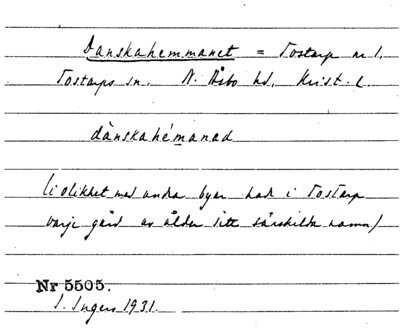 Danskahemmanet = Tostarp nr 1.
Tostarps sn. N. Åsbo hd. Krist. l.
dànskahémanad
(i olikhet med andra byar had i Tostarp
varje gård av ålder sitt särskilda namn)
Nr 5505.
I. Ingers 1931.